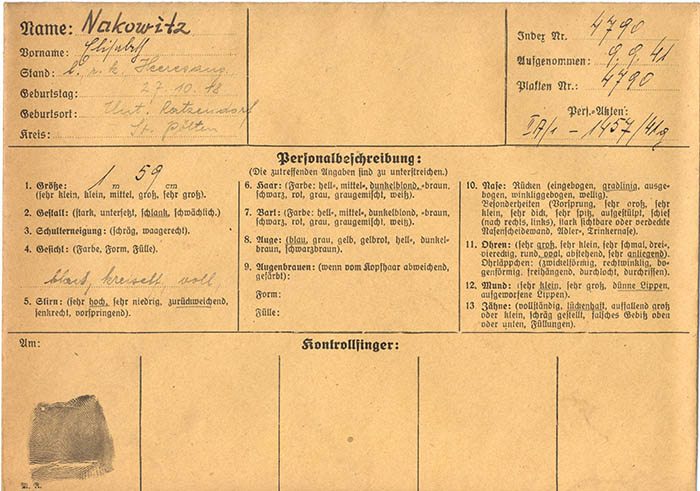 Name: Nakowitz
Vorname: Elisabeth
Stand:
Geburtstag: 27.10.18
Geburtsort: Unt. Ratzendorf
Kreis: St. Pölten
Index Nr. 4790
Aufgenommen: 9.9.41
Platten Nr.: 4790
Pers.-Akten:
IA/1 – 1457/41g
Personalbeschreibung:
(Die zutreffenden Angaben sind zu unterstreichen.)
1. Größe: 1 m 59 cm
(sehr klein, klein, mittel, groß, sehr groß).
2. Gestalt: (stark, untersetzt, schlank, schwächlich).
3. Schulterneigung: (schräg, waagerecht).
4. Gesicht: (Farbe, Form, Fülle).
voll
5. Stirn: (sehr hoch, sehr niedrig, zurückweichend,
senkrecht, vorspringend).
6. Haar: (Farbe: hell-, mittel-, dunkelblond, -braun,
schwarz, rot, grau, graugemischt, weiß).
7. Bart: (Farbe: hell-, mittel-, dunkelblond, -braun,
schwarz, rot, grau, graugemischt, weiß).
8. Auge: (blau, grau, gelb, gelbrot, hell-, dunkel-
braun, schwarzbraun).
9. Augenbrauen: (wenn vom Kopfhaar abweichend,
gefärbt):
Form:
Fülle:
10. Nase: Rücken (eingebogen, gradlinig, ausge-
bogen, winkliggebogen, wellig).
Besonderheiten (Vorsprung, sehr groß, sehr
klein, sehr dick, sehr spitz, aufgestülpt, schief
(nach rechts, links), stark sichtbare oder verdeckte
Nasenscheidewand, Adler-, Trinkernase).
11. Ohren: (sehr groß, sehr klein, sehr schmal, drei-,
viereckig, rund, oval, abstehend, sehr anliegend).
Ohrläppchen: (zwickelförmig, rechtwinklig, bo-
genförmig, freihängend, durchlocht, durchrissen).
12. Mund: (sehr klein, sehr groß, dünne Lippen,
aufgeworfene Lippen).
13 Zähne: (vollständig, lückenhaft, auffallend groß
oder klein, schräg gestellt, falsches Gebiß oben
oder unten, Füllungen).
Am:
Kontrollfinger: